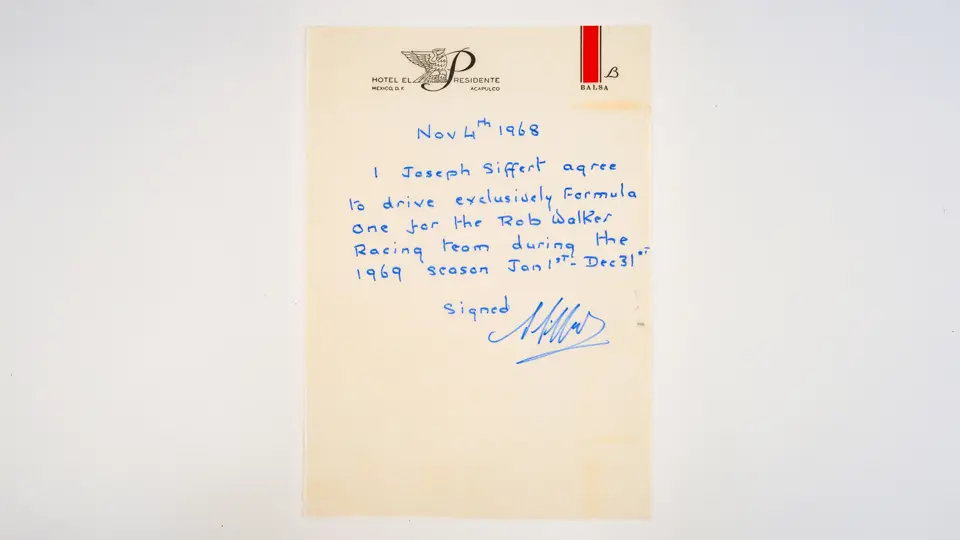 HOTEL EL PRESIDENTE
MEXICO, D.F. ACAPULCO
B
BALSA
Nov 4th 1968
I Joseph Siffert agree
to drive exclusively Formula
One for the Rob Walker
Racing team during the
1969 season Jan 1st - Dec 31st
Signed